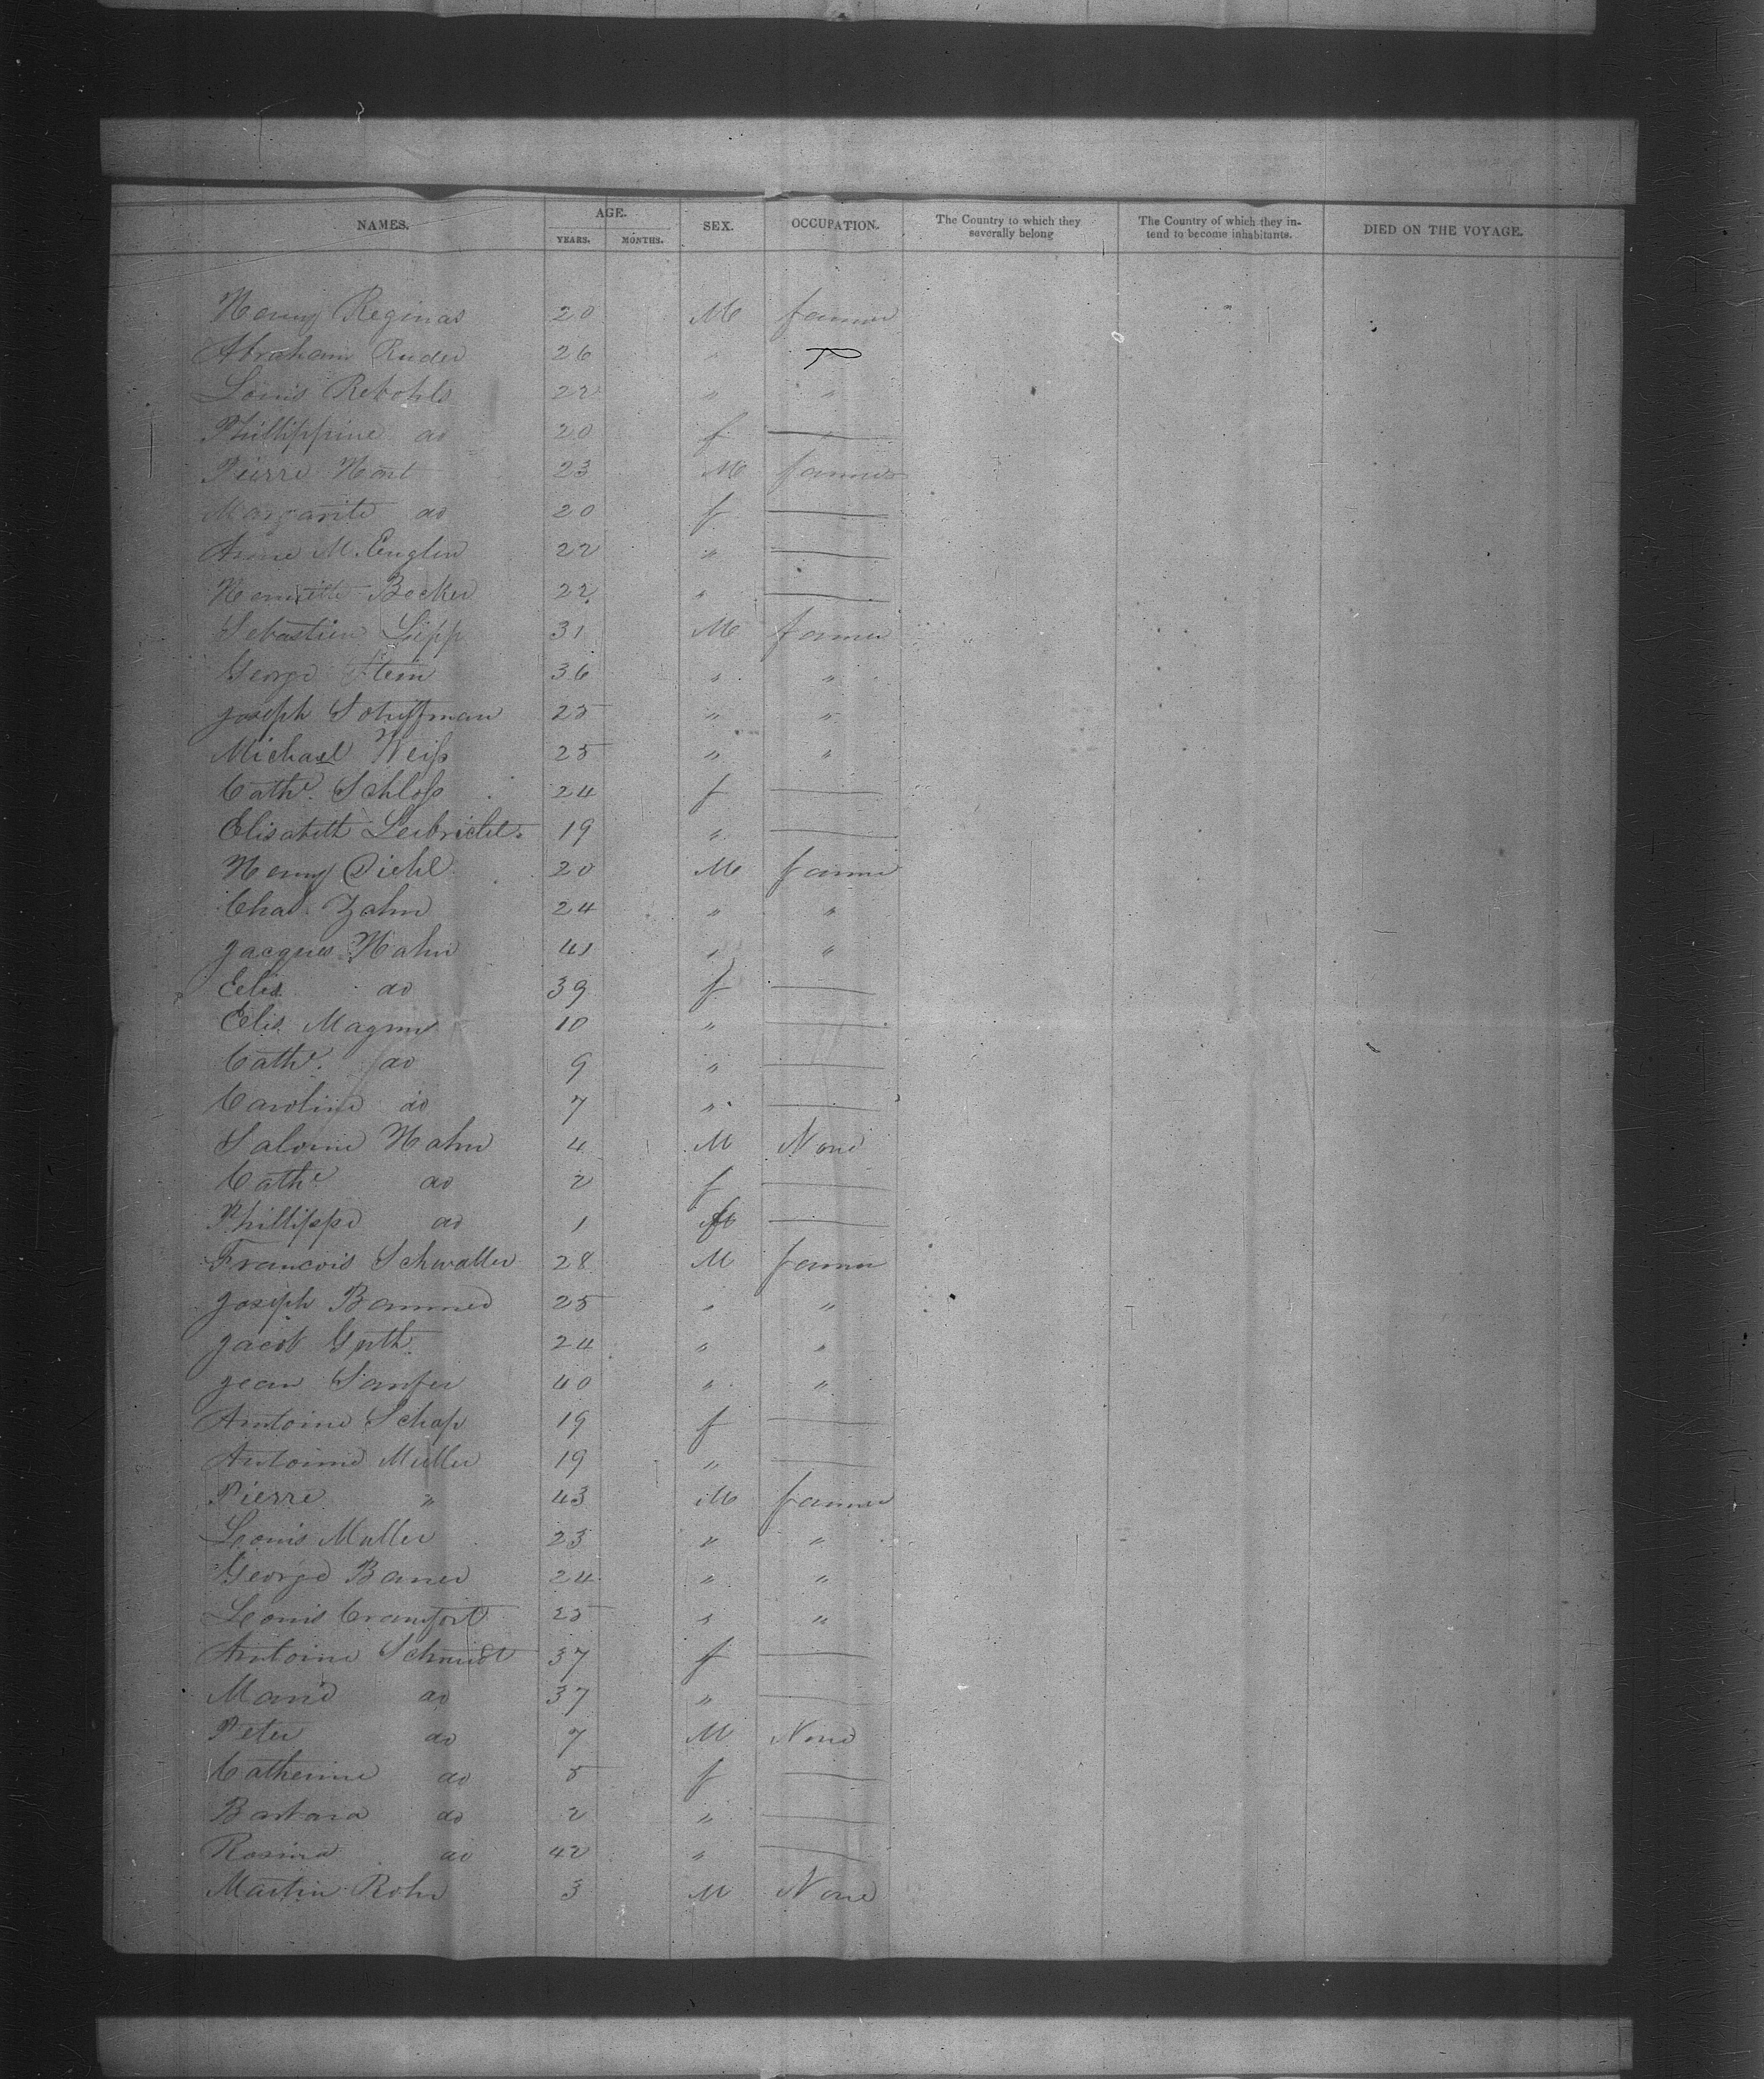 NAMES. AGE. SEX. OCCUPATION. The Country to which they severally belong The Country of which they intend to become inhabitants. DIED ON THE VOYAGE.
YEARS. MONTHS.
Henry Reginas 20 M farmer
Abraham Ruder 26 "
Louis Rebohls 22 " "
Phillippine do 20 f —
Pierre Hart 23 M farmer
Margarite do 20 f —
Anne M. Englin 22 " —
Henriette Becker 22 " —
Sebastien Lipp 31 M farmer
George Stein 36 " "
Joseph Schiffman 25 " "
Michael Weiss 25 " "
Cathe. Schloss 24 f —
Elisabeth Leibricht 19 " —
Henry Diehl 20 M farmer
Chas. Zahn 24 " "
Jacques Hahn 41 " "
Elis. do 39 f —
Elis. Magnus 10 " —
Cathe. do 9 " —
Caroline do 7 " —
Salome Hahn 4 M None
Cathe do 2 f —
Phillippe do 1 —
Francois Schwaller 28 M farmer
Joseph Bammed 25 " "
Jacob Guth 24 " "
Jean Saufer 40 " "
Antoine Schaf 19 f —
Antoinne Muller 19 " —
Pierre " 43 M farmer
Louis Muller 23 " "
George Bauer 24 " "
Louis Cranfort 25 " "
Antoine Schmidt 37 f —
Marie do 37 " —
Peter do 7 M None
Catherine do 5 f —
Barbara do 2 " —
Rosina do 42 " —
Martin Rohr 3 M None